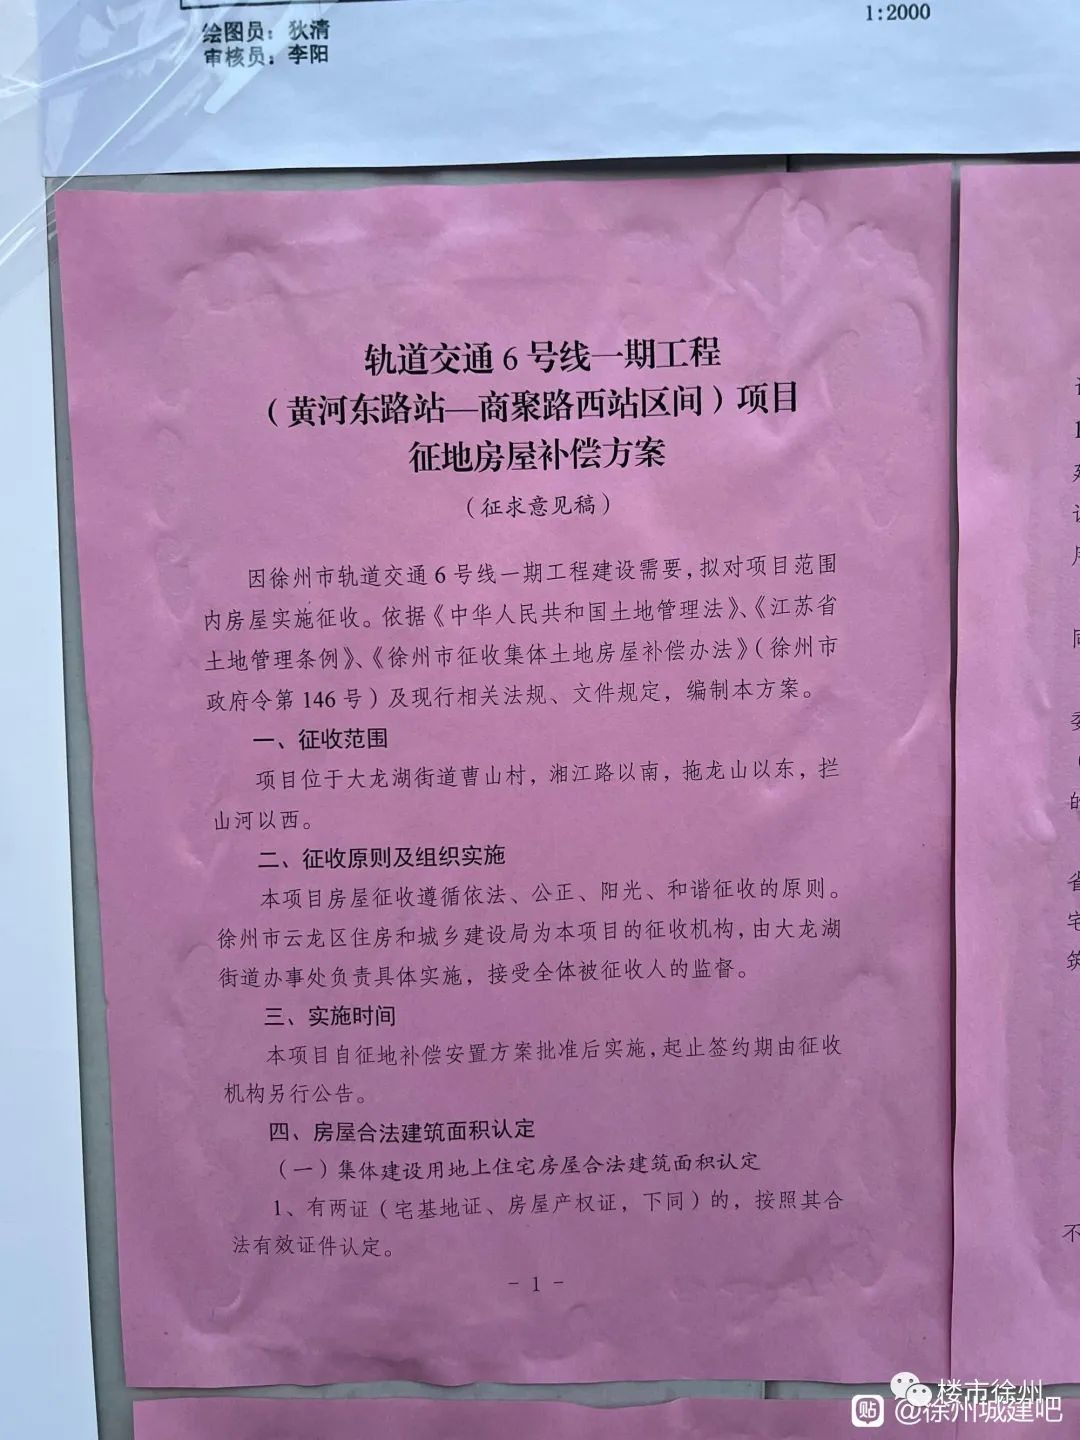 绘图员：狄清
审核员：李阳
1:2000
轨道交通 6 号线一期工程
（黄河东路站—商聚路西站区间）项目
征地房屋补偿方案
（征求意见稿）
因徐州市轨道交通 6 号线一期工程建设需要，拟对项目范围
内房屋实施征收。依据《中华人民共和国土地管理法》、《江苏省
土地管理条例》、《徐州市征收集体土地房屋补偿办法》（徐州市
政府令第 146 号）及现行相关法规、文件规定，编制本方案。
一、征收范围
项目位于大龙湖街道曹山村，湘江路以南，拖龙山以东，拦
山河以西。
二、征收原则及组织实施
本项目房屋征收遵循依法、公正、阳光、和谐征收的原则。
徐州市云龙区住房和城乡建设局为本项目的征收机构，由大龙湖
街道办事处负责具体实施，接受全体被征收人的监督。
三、实施时间
本项目自征地补偿安置方案批准后实施，起止签约期由征收
机构另行公告。
四、房屋合法建筑面积认定
（一）集体建设用地上住宅房屋合法建筑面积认定
1、有两证（宅基地证、房屋产权证，下同）的，按照其合
法有效证件认定。
- 1 -
楼市徐州
贴 @徐州城建吧